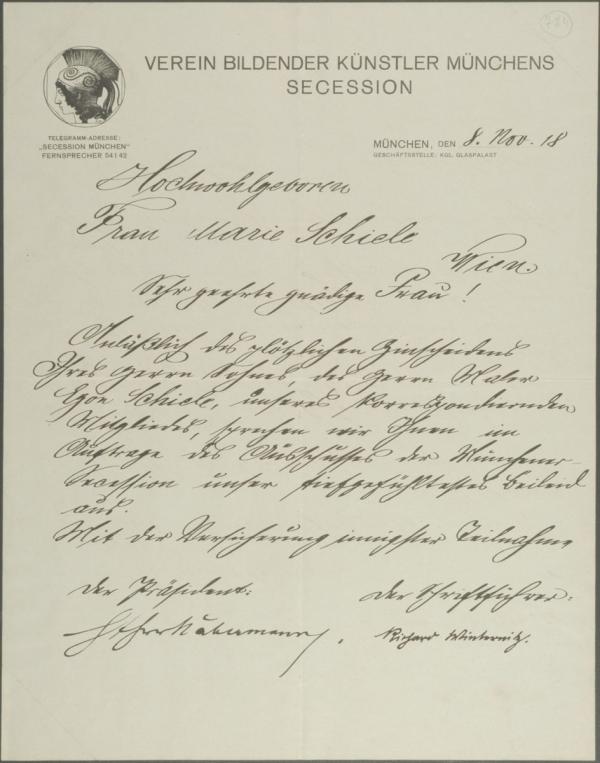 724
VEREIN BILDENDER KÜNSTLER MÜNCHENS
SECESSION
TELEGRAMM-ADRESSE:
„SECESSION MÜNCHEN"
FERNSPRECHER 54142
MÜNCHEN, DEN 8. Nov. 18
GESCHÄFTSSTELLE: KGL. GLASPALAST
Hochwohlgeboren
Frau Marie Schiele
Wien.
Sehr geehrte gnädige Frau!
Anläßlich des plötzlichen Hinscheidens
Ihres Herrn Sohnes, des Herrn Maler
Egon Schiele, unseres korrespondierenden
Mitgliedes, sprechen wir Ihnen im
Auftrage des Ausschusses der Münchener
Secession unser tiefgefühltestes Beileid
aus.
Mit der Versicherung innigster Teilnahme
Der Präsident: Der Schriftführer:
Habermann. Richard Winternitz.